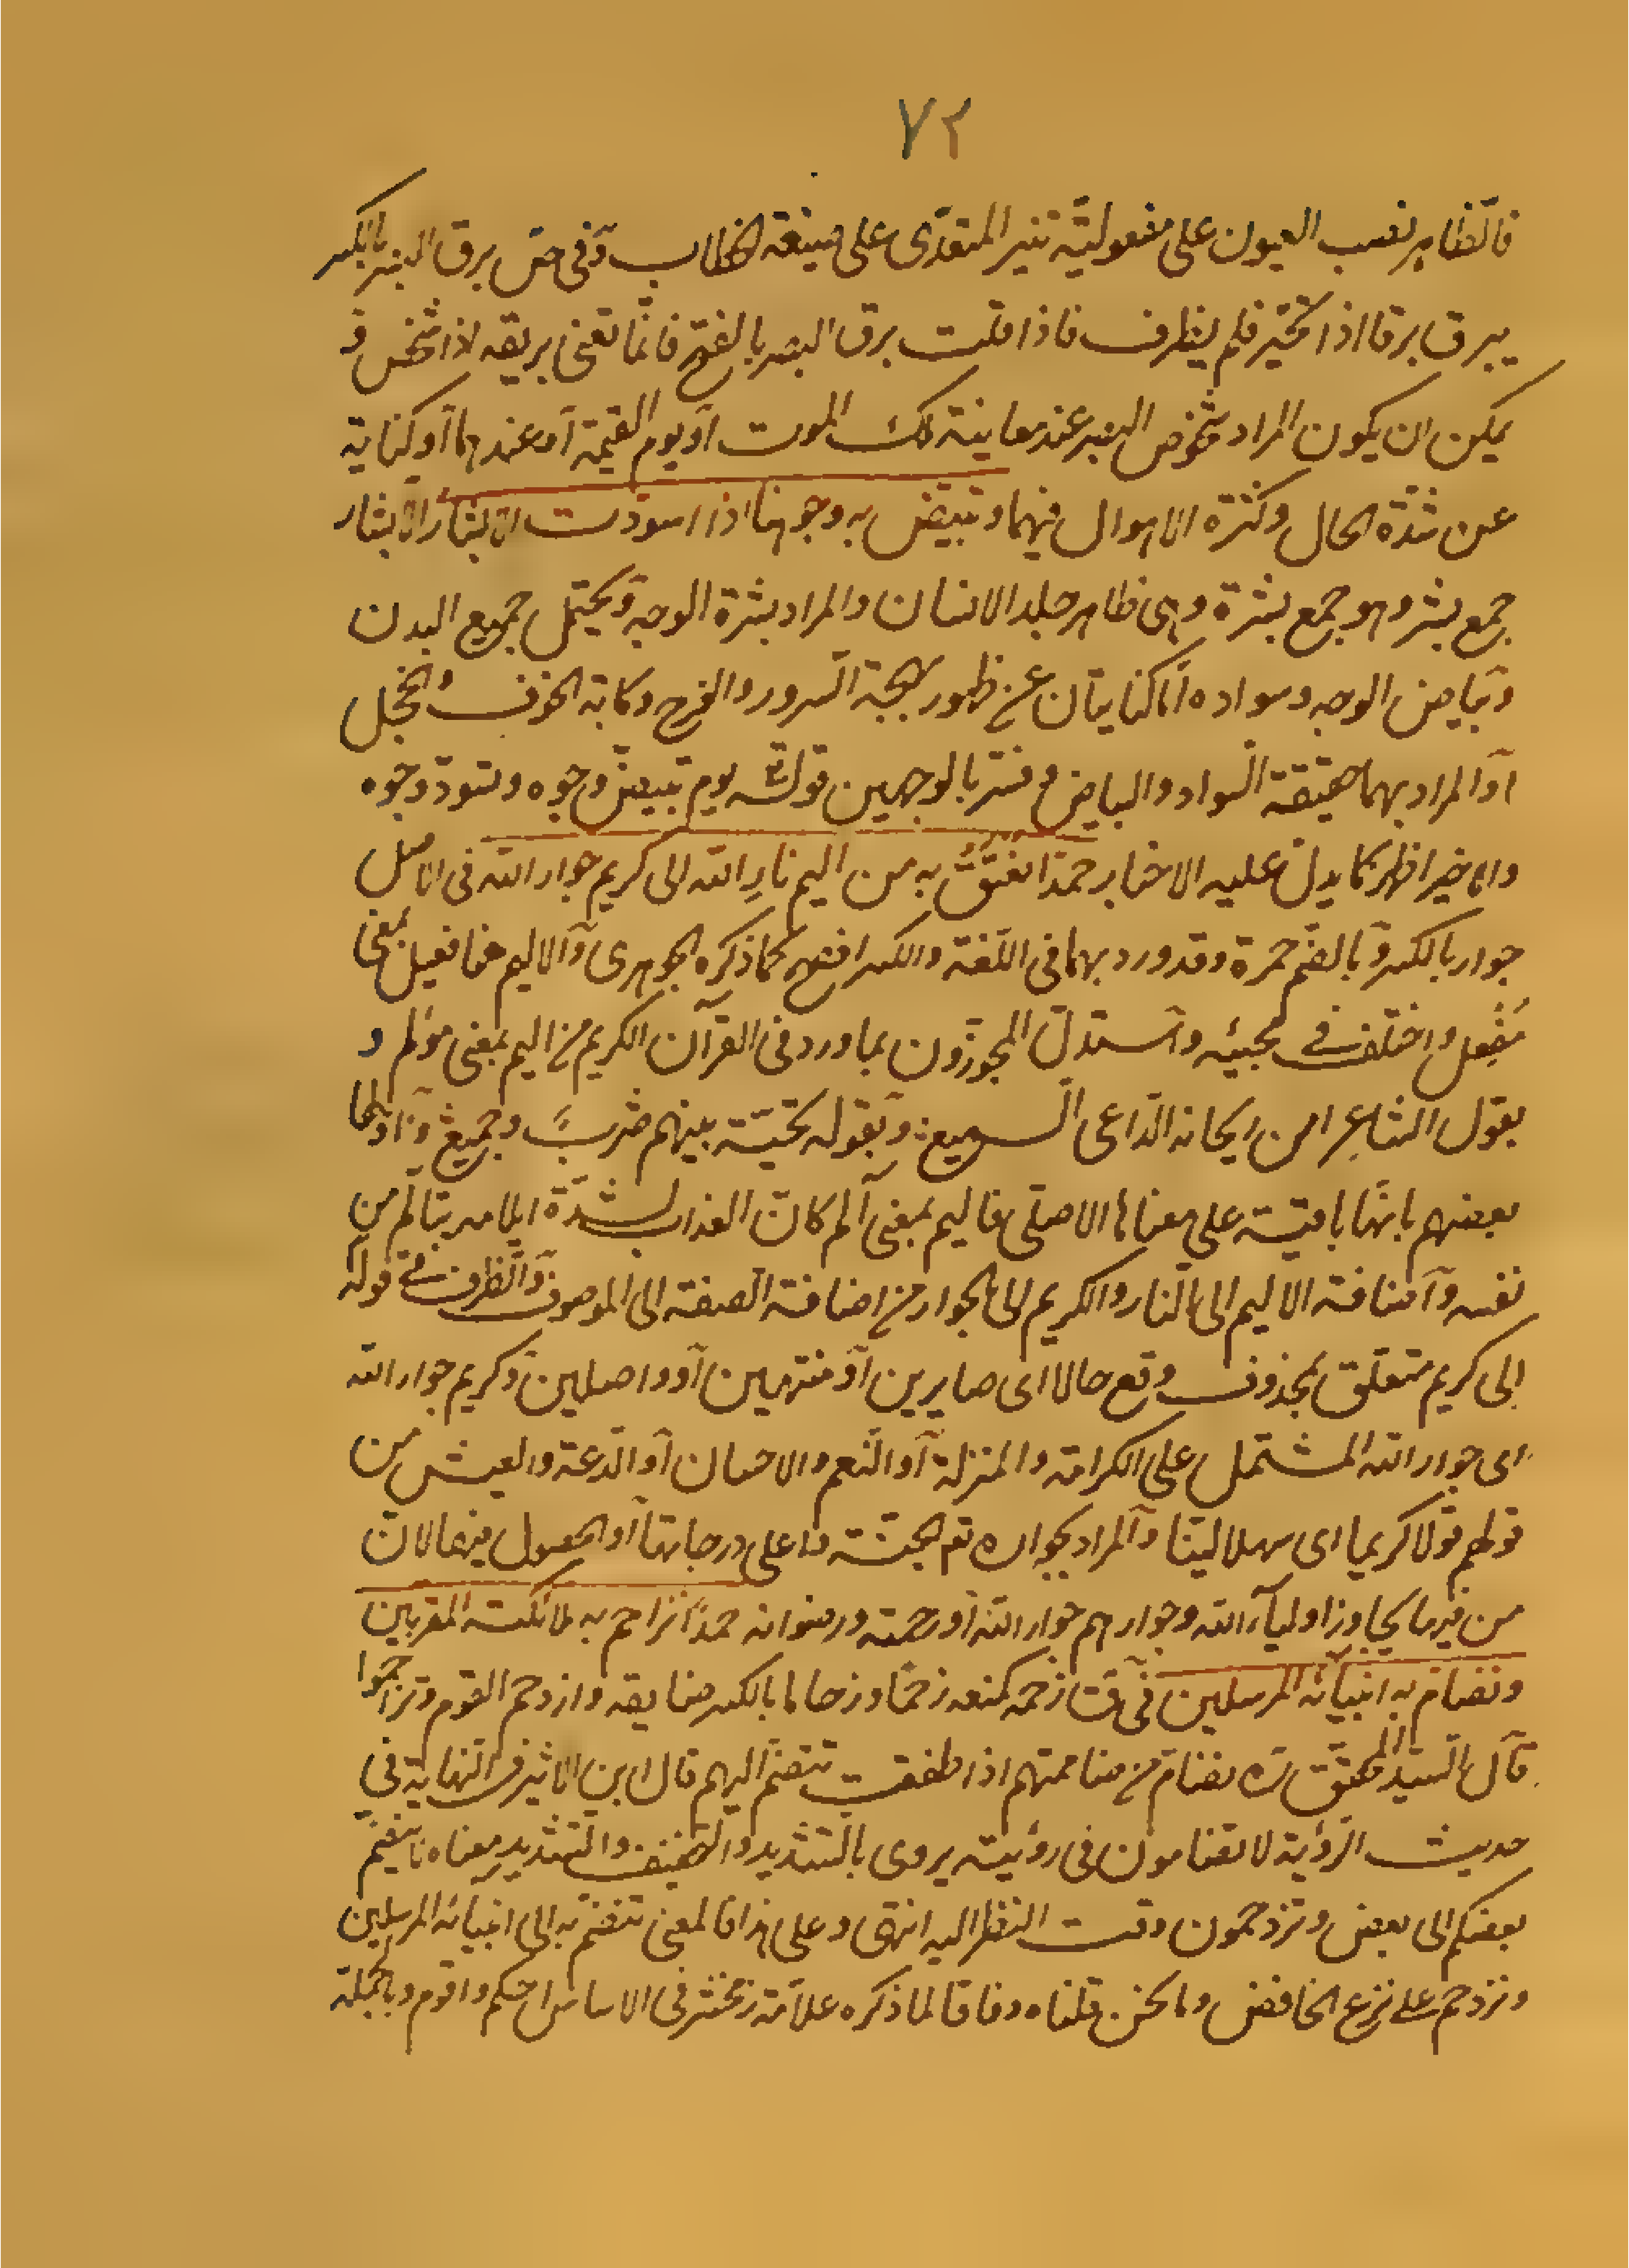 ٧٢
فالظاهر نصب العيون على مفعولية تنير المتعدى على صيغة الخطاب و فى ص برق البصر بالكسر
يبرق برقا اذا تحير فلم يطرف فاذا قلت برق البصر بالفتح فانما تعنى بريقه اذا شخص و
يمكن ان يكون المراد شخوص البصر عند معاينة ملك الموت او يوم القيمة او عندهما او كناية
عن شدة الحال و كثرة الاهوال فيهما و تبيض به وجوهنا اذا اسودت الابشار الابشار
جمع بشر وهو جمع بشرة وهى ظاهر جلد الانسان والمراد بشرة الوجه و يحتمل جميع البدن
و بياض الوجه و سواده اما كنايتان عن ظهور بهجة السرور والفرح و كابة الخوف والخجل
او المراد بهما حقيقة السواد والبياض و فسر بالوجهين قوله تع يوم تبيض وجوه و تسود وجوه
والاخير اظهر كما يدل عليه الاخبار حمدا نعتق به من اليم نار الله الى كريم جوار الله فى الاصل
جوار بالكسر و بالضم حمرة و قد ورد بهما فى اللغة والكسر افصح كما ذكره الجوهرى و الاليم هنا فعيل بمعنى
مُفْعِل و اختلف فى مجيئه و استدل المجوزون بما ورد فى القرآن الكريم من اليم بمعنى مؤلم و
بقول الشاعر امن ريحانه الداعى السميع و بقوله تحية بينهم ضرب وجيع و اولها
بعضهم بانها باقية على معناها الاصلى فاليم بمعنى آلم كان العذاب لشدة ايلامه يتالم من
نفسه و اضافة الاليم الى النار والكريم الى الجوار من اضافة الصفة الى الموصوف والظرف فى قوله
الى كريم متعلق بمحذوف وقع حالا اى صايرين او منتهيين او واصلين و كريم جوار الله
اى جوار الله المشتمل على الكرامة والمنزلة او النعم والاحسان او الدعة والعيش من
قولهم قولا كريما اى سهلا لينا و المراد بجواره تع الجنة و اعلى درجاتها او الحصول فيها لان
من فيها يجاوز اولياء الله وجوارهم جوار الله او رحمته و رضوانه حمدا نزاحم به ملائكته المقربين
و نضام به انبيائه المرسلين فى ق زحمه كمنعه زحما و زحاما بالكسر ضايقه و ازدحم القوم و تزاحموا
قال السيد المحقق ره نضام من ضاممتهم اذا طفقت تنضم اليهم قال ابن الاثير فى النهاية فى
حديث الرؤية لا تضامون فى رؤيته يروى بالتشديد والتخفيف والتشديد معناه لا ينضم
بعضكم الى بعض و تزدحمون وقت النظر اليه انتهى و على هذا فالمعنى ننضم به الى انبيائه المرسلين
و نزدحم على نزع الخافض وما نحن قلناه وفاقا لما ذكره علامة زمخشر فى الاساس احكم و اقوم و بالجملة